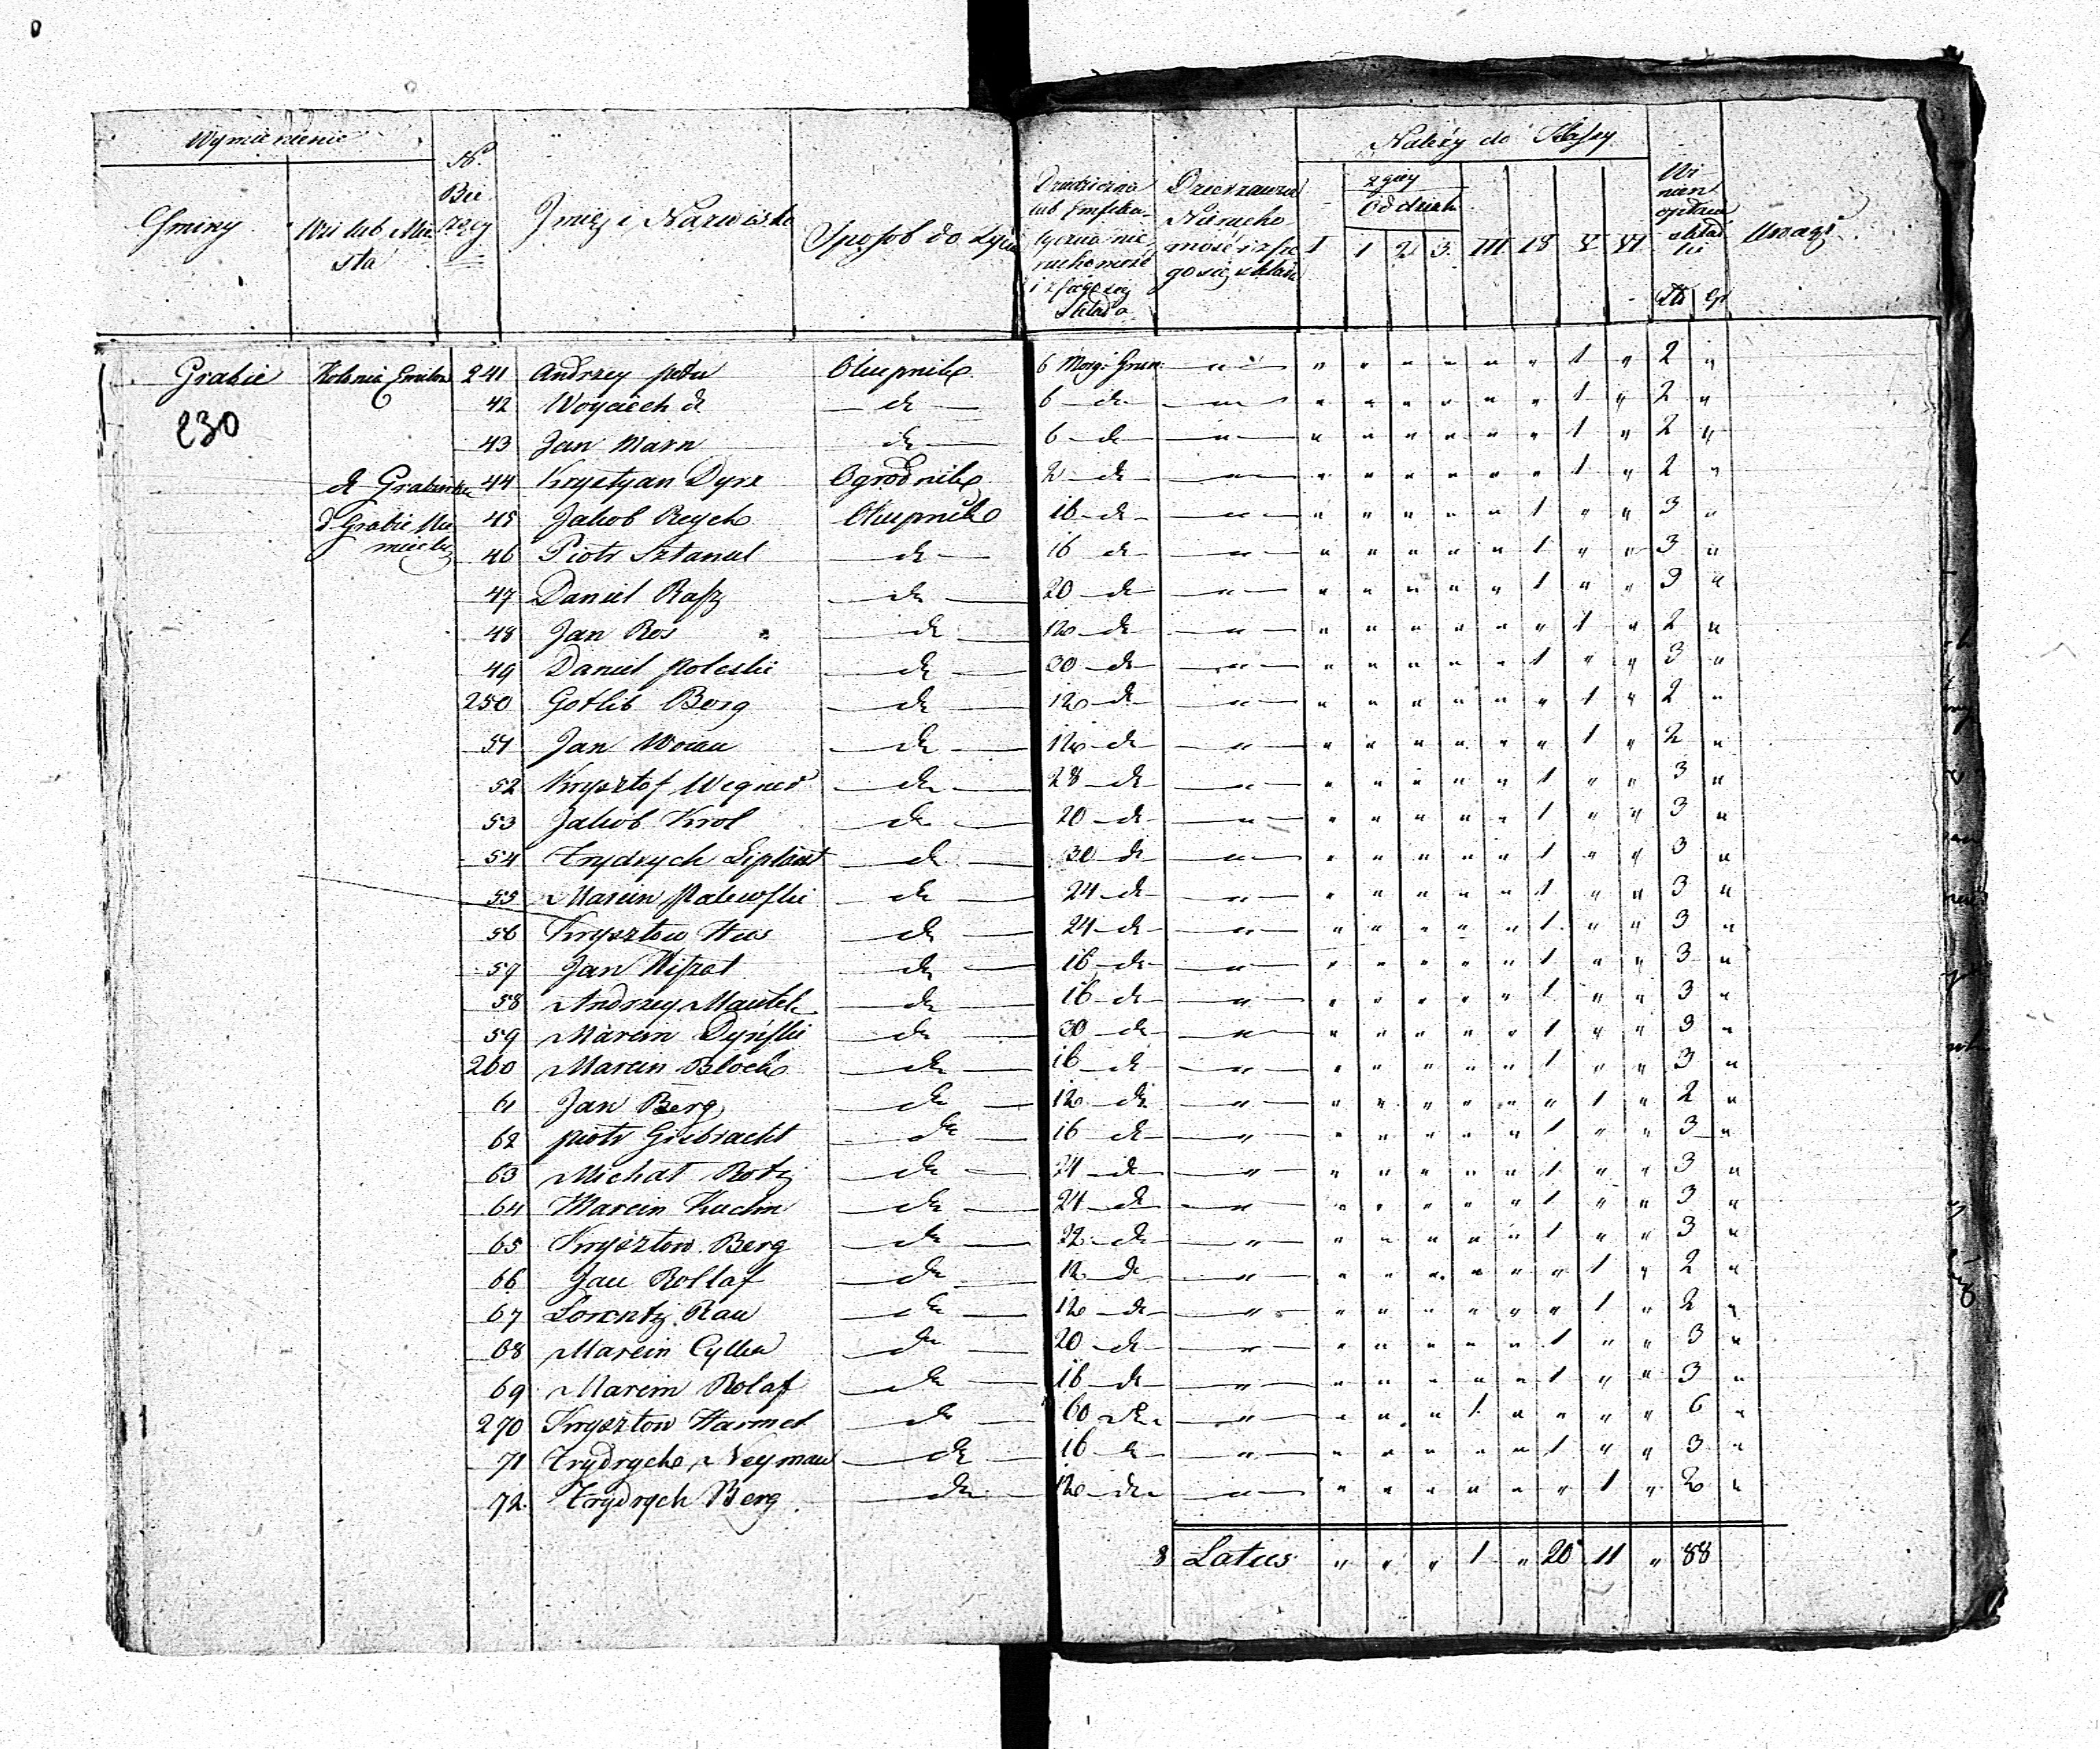 Wymienienie
Gminy
Wsi lub Mia
sta
No.
Bie
rzcy
Imię i Nazwisko
Sposób do życia
Dziedziczna
lub Emfiteu
tyczna nie
ruchomość
Dzierzawna
Nierucho
mość
Należy do Klassy
2giey
Oddziału
I 1 2 3 III IV V VI
Wi
nien
opłacać
skład
ki
Zł gr
Uwagi
Grabie Kolonia 241 Andrzey Okupnik 6 Morg: Grun: " " " " " " " 1 " 2 "
230
42 Woyciech d. d 6 d " " " " " " " 1 " 2 "
43 Jan Marn d 6 d " " " " " " " 1 " 2 "
d Grabinka 44 Krystyan Dyrx Ogrodnik 2 d " " " " " " " 1 " 2 "
d Grabie Nie
mieckie
45 Jakob Reych Okupnik 16 d " " " " " " 1 " " 3 "
46 Piotr Sztanul d 16 d " " " " " " 1 " " 3 "
47 Daniel Rasz d 20 d " " " " " " 1 " " 3 "
48 Jan Ros d 12 d " " " " " " " 1 " 2 "
49 Daniel Poleski d 20 d " " " " " " 1 " " 3 "
250 Gotlib Berg d 12 d " " " " " " " 1 " 2 "
51 Jan d 12 d " " " " " " " 1 " 2 "
52 Krysztof Wegner d 28 d " " " " " " 1 " " 3 "
53 Jakob Krol d 20 d " " " " " " 1 " " 3 "
54 Frydrych d 30 d " " " " " " 1 " " 3 "
55 Marcin Palewski d 24 d " " " " " " 1 " " 3 "
56 Krysztow Hus d 24 d " " " " " " 1 " " 3 "
57 Jan d 16 d " " " " " " 1 " " 3 "
58 Andrzey Mantek d 16 d " " " " " " 1 " " 3 "
59 Marcin Dyński d 30 d " " " " " " 1 " " 3 "
260 Marcin Bloch d 16 d " " " " " " 1 " " 3 "
61 Jan Berg d 12 d " " " " " " " 1 " 2 "
62 Piotr Giebracht d 16 d " " " " " " 1 " " 3 "
63 Michał Rotz d 24 d " " " " " " 1 " " 3 "
64 Marcin Kuchn d 24 d " " " " " " 1 " " 3 "
65 Krysztow Berg d 22 d " " " " " " 1 " " 3 "
66 Jan Rollaf d 12 d " " " " " " " 1 " 2 "
67 Lorentz Rau d 12 d " " " " " " " 1 " 2 "
68 Marcin Cylka d 20 d " " " " " " 1 " " 3 "
69 Marcin Rolaf d 16 d " " " " " " 1 " " 3 "
270 Krysztow Harmel d 60 d " " " " 1 " " " " 6 "
71 Frydrych Neyman d 16 d " " " " " " 1 " " 3 "
72 Frydrych Berg d 12 d " " " " " " " 1 " 2 "
8 Latus " " " 1 " 20 11 " 88